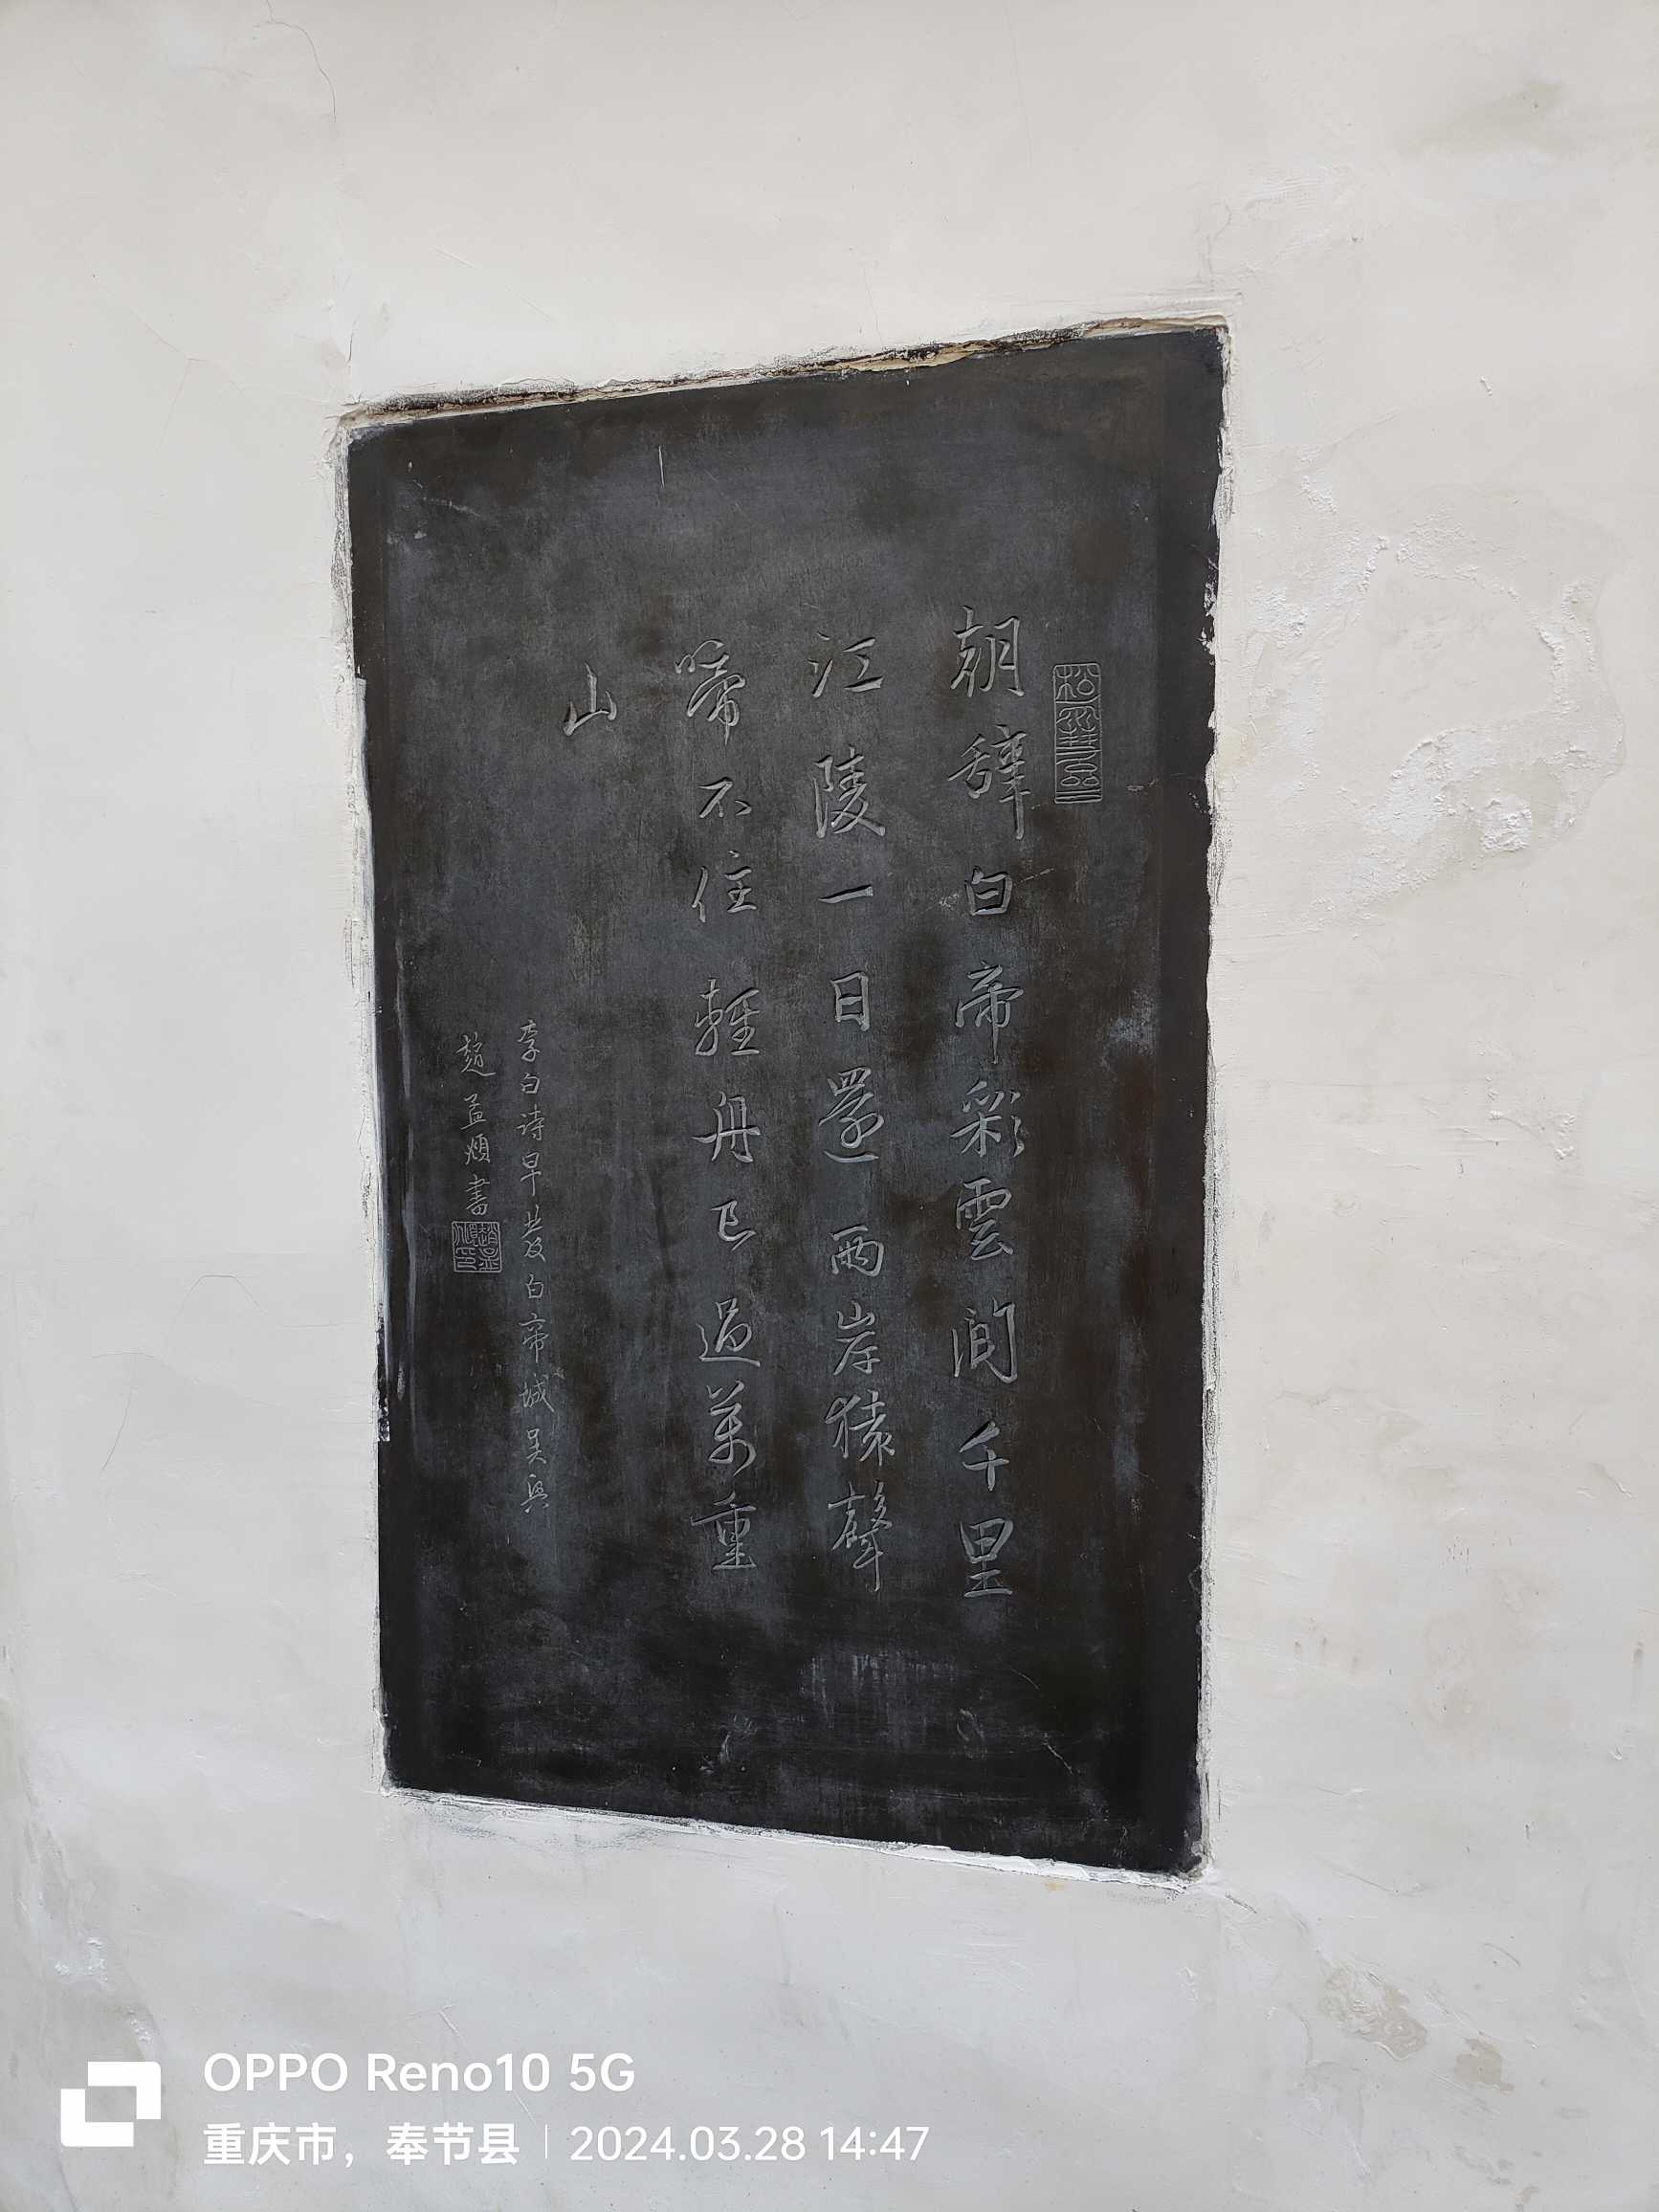 朝辞白帝彩雲间千里
江陵一日還两岸猿聲
啼不住輕舟已過萬重
山
李白诗早发白帝城吴興
趙孟頫書
OPPO Reno10 5G
重庆市，奉节县 | 2024.03.28 14:47